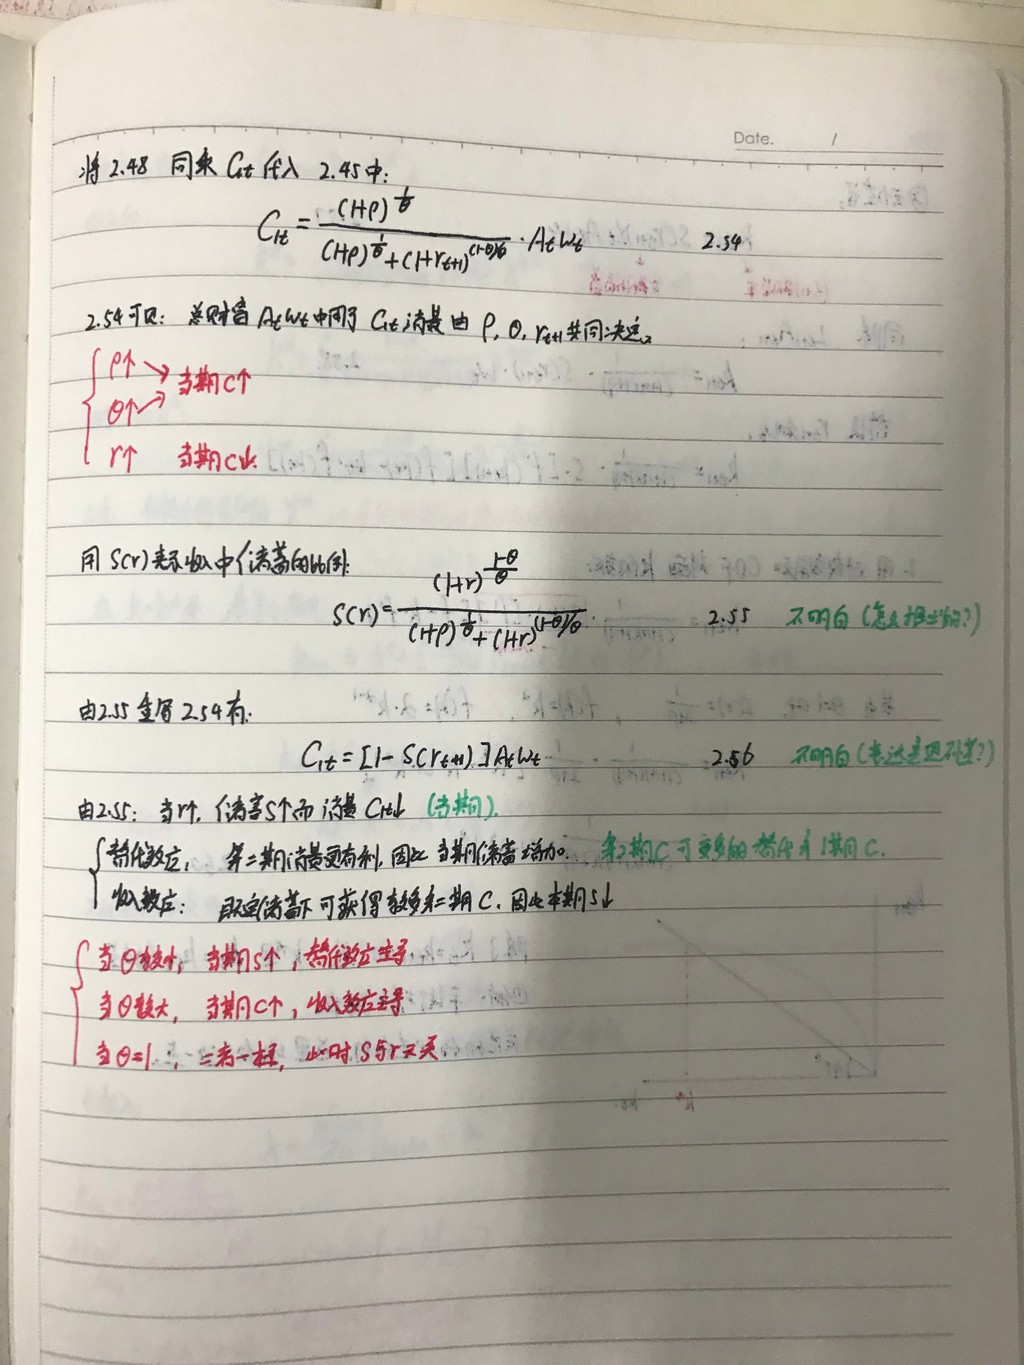 Date. /
将 2.48 同乘 C₁t 代入 2.45中:
C₁t = (1+ρ)^(1/θ) / [(1+ρ)^(1/θ) + (1+r_{t+1})^((1-θ)/θ)] · AtWt 2.54
2.54可见: 总财富 AtWt中用于 C₁t 消费 由 ρ, θ, r_{t+1}共同决定。
ρ↑ ↘ 当期C↑
θ↑ ↗
r↑ 当期C↓
用 S(r)表示收入中储蓄的比例:
S(r) = (1+r)^((1-θ)/θ) / [(1+ρ)^(1/θ) + (1+r)^((1-θ)/θ)] 2.55 不明白 (怎么推出的?)
由2.55 重写 2.54有:
C₁t = [1 - S(r_{t+1})] AtWt 2.56 不明白 (表达是恩不是?)
由2.55: 当r↑, 储蓄S↑而 消费 C₁t↓ (当期).
替代效应, 第二期消费更有利, 因此 当期储蓄增加. 第2期C 可更多的 替代 第1期 C.
收入效应: 既定储蓄下 可获得 较多第二期 C. 因此本期S↓
当θ较小, 当期S↑, 替代效应主导
当θ较大, 当期C↑, 收入效应主导
当θ=1, 二者一样, 此时 S与r无关